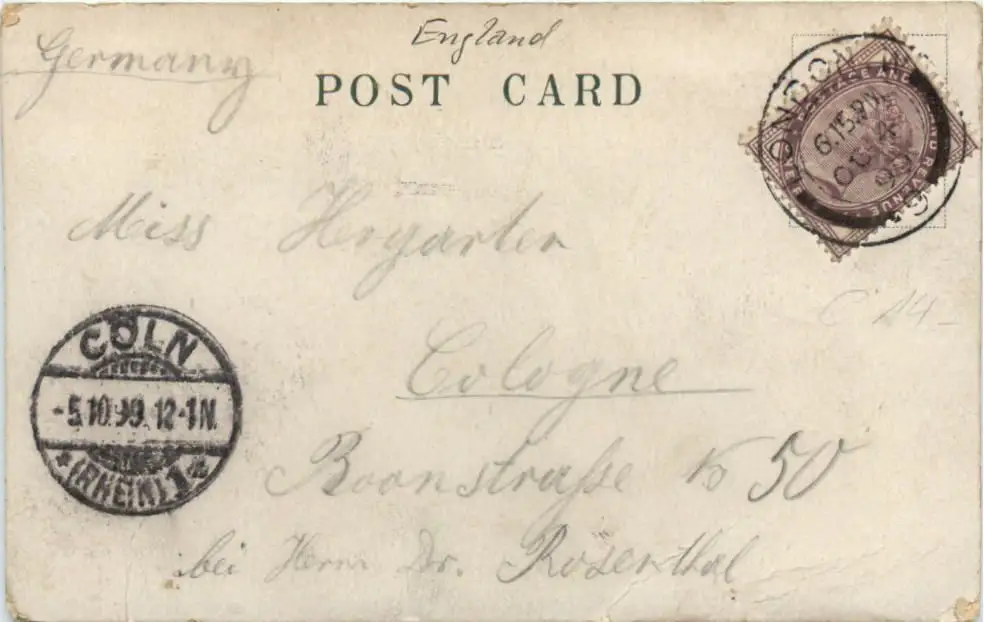 England
Germany
POST CARD
LONDON
6.15 PM
OC 4
99
POSTAGE AND INLAND REVENUE
Miss Hergarten
C 14-
Cologne
CÖLN
-5.10.99.12-1N.
*(RHEIN) 1*
Roonstraße № 50
bei Herrn Dr. Rosenthal